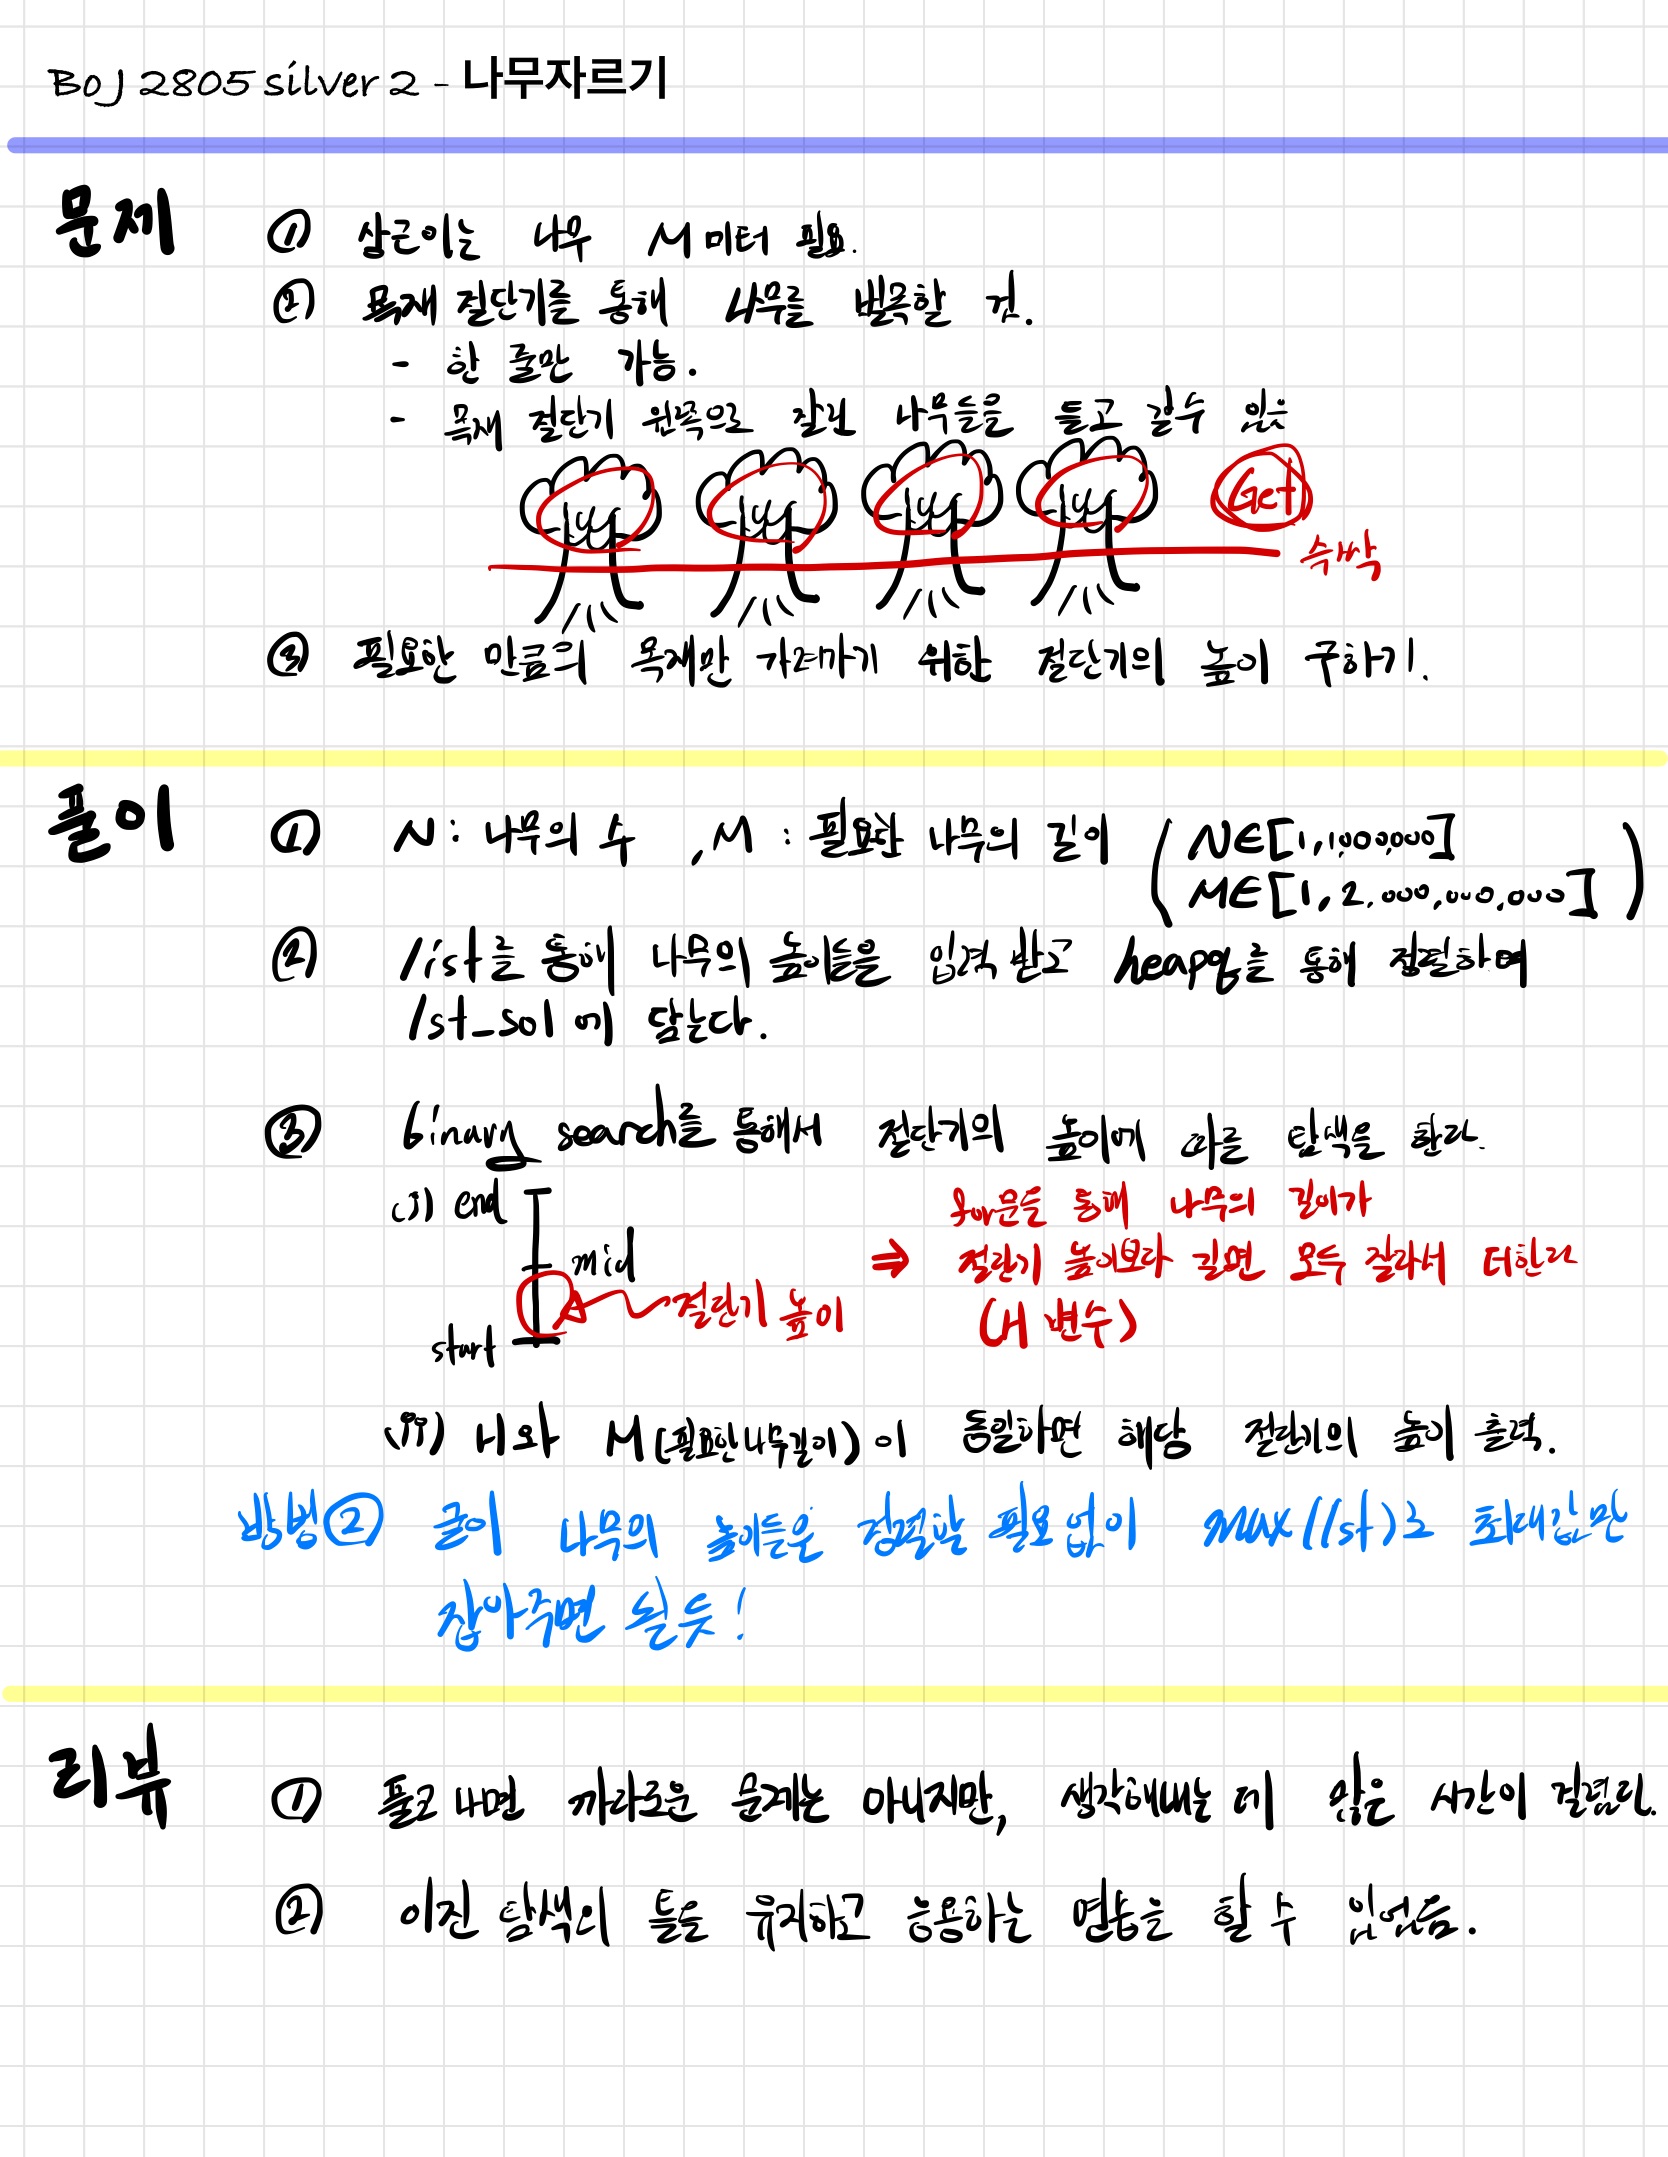 BOJ 2805 silver 2 - 나무자르기
문제
① 상근이는 나무 M미터 필요.
② 목재 절단기를 통해 나무를 벌목할 것.
- 한 줄만 가능.
- 목재 절단기 윈쪽으로 잘린 나무들을 들고 갈수 있음
Get
슥싹
③ 필요한 만큼의 목재만 가져가기 위한 절단기의 높이 구하기.
풀이
① N : 나무의 수 , M : 필요한 나무의 길이 ( N∈[1,1,000,000]
M∈[1, 2,000,000,000] )
② list를 통해 나무의 높이들을 입력 받고 heapq를 통해 정렬하여
lst_sol에 담는다.
③ binary search를 통해서 절단기의 높이에 따른 탐색을 한다.
(i) end
mid
start
절단기 높이
⇒ for문을 통해 나무의 길이가
절단기 높이보다 길면 모두 잘라서 더한다
(H 변수)
(ii) H와 M(필요한나무길이)이 동일하면 해당 절단기의 높이 출력.
방법② 굳이 나무의 높이들을 정렬할 필요없이 max(lst)로 최대값만
잡아주면 될듯!
리뷰
① 풀고 나면 까다로운 문제는 아니지만, 생각해내는 데 많은 시간이 걸렸다.
② 이진 탐색의 틀을 유지하고 응용하는 연습을 할 수 있었음.